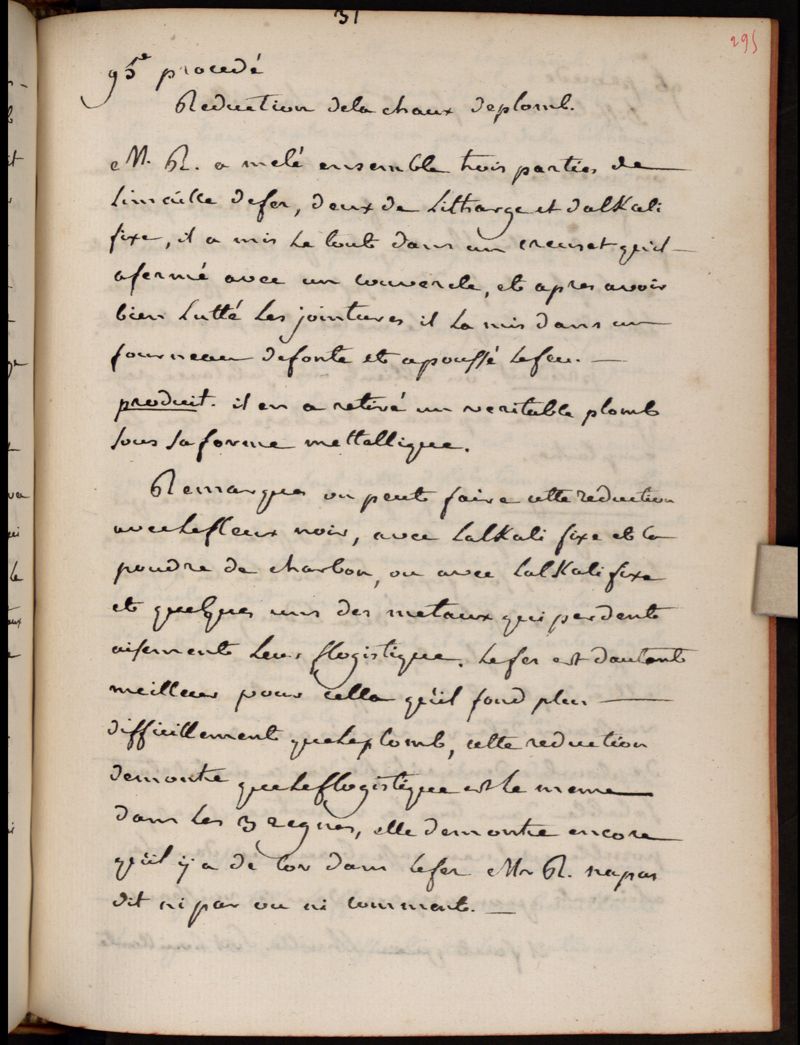 31
295
95e procedé
Reduction dela chaux deplomb.
Mr. R. a melé ensemble trois parties de
Limaille defer, deux de Litharge et dalKali
fixe, il a mis Le tout dans un creuset qu'il
afermé avec un couvercle, et apres avoir
bien Lutté Les jointures il La mis dans un
fourneau defonte et apoussé Lefeu.
produit. il en a retiré un veritable plomb
sous Laforme mettallique.
Remarques on peut faire cette reduction
avec Lefleux noir, avec LalKali fixe et La
poudre de charbon, ou avec LalKali fixe
et quelques uns des metaux qui perdent
aisement Leur flogistique. Lefer est dautant
meilleur pour cella qu'il fond plus
difficillement queLeplomb, cette reduction
demontre queLeflogistique est Le meme
dans Les 3 regnes, elle demontre encore
qu'il y a de Lor dans Lefer Mr R. napas
dit ni par ou ni comment.